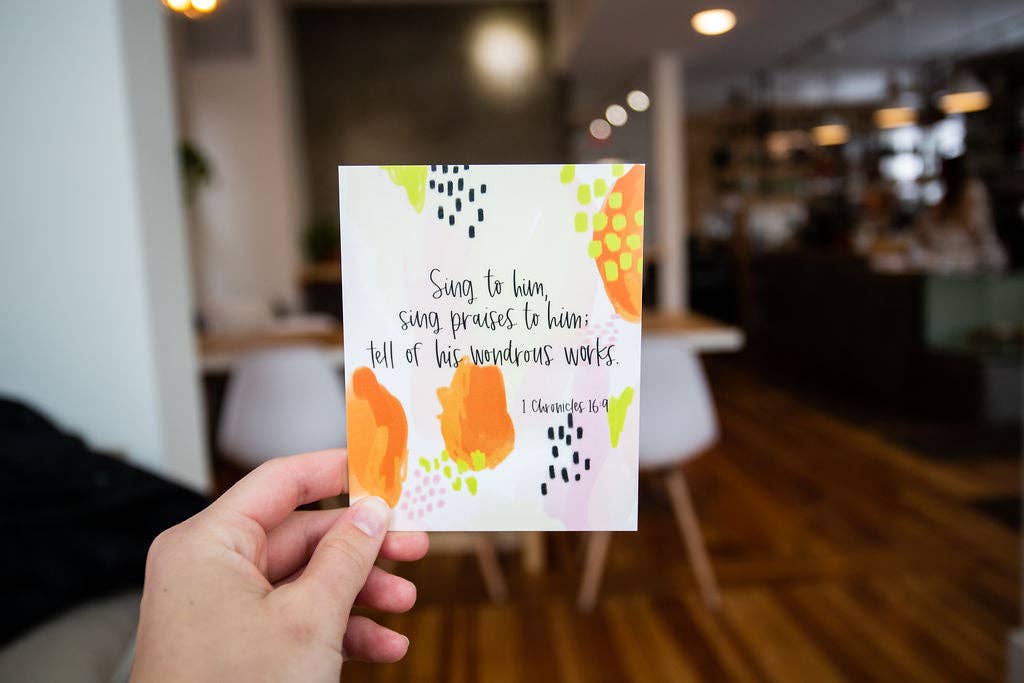 Sing to him,
sing praises to him;
tell of his wondrous works.
1 Chronicles 16:9